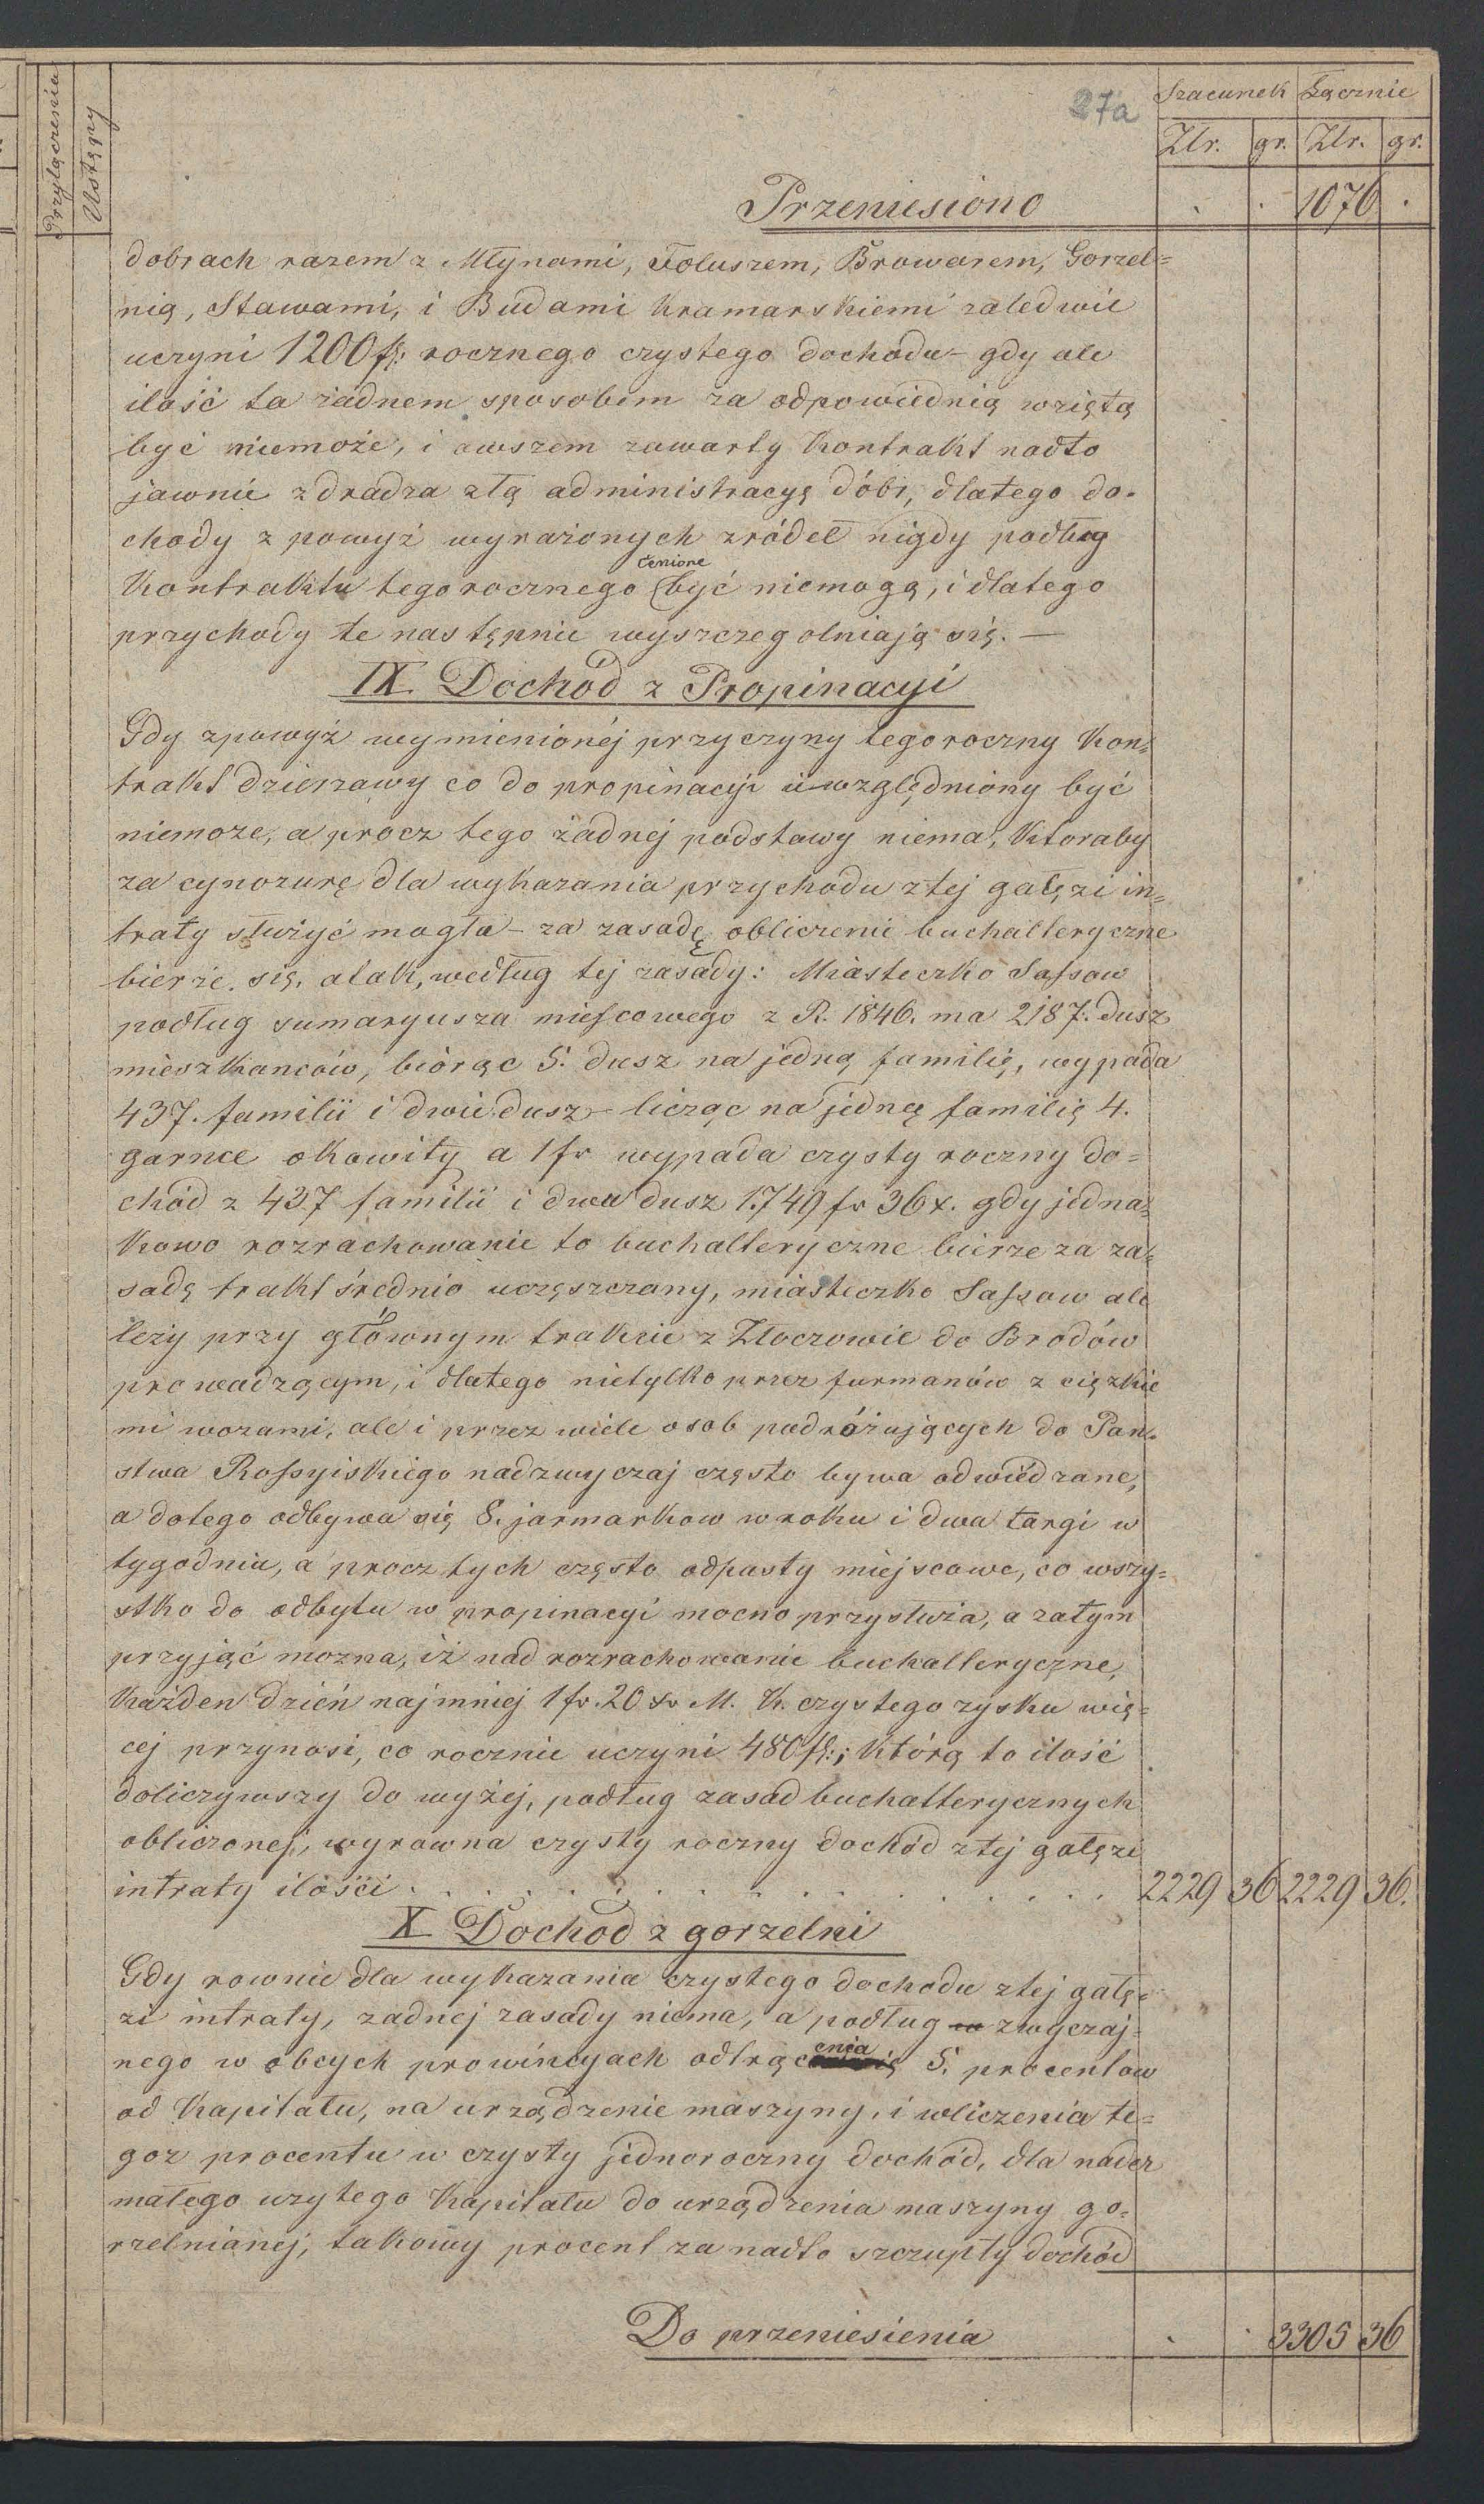 Przyłączenia
Ustępy
27a
Szacunek Łącznie
Złr. gr. Złr. gr.
Przeniesiono . . 1076 .
dobrach razem z Młynami, Foluszem, Browarem, Gorzel=
nią, Stawami, i Budami kramarskiemi zaledwie
uczyni 1200 fl: rocznego czystego dochodu – gdy ale
ilość ta żadnem sposobem za odpowiednią wziętą
być niemoże, i owszem zawarty kontrakt nadto
jawnie zdradza złą administracyą dóbr, dlatego do-
chody z powyż wyrażonych zródeł nigdy podług
cenione
kontraktu tegorocznego być niemogą, i dlatego
przychody te następnie wyszczegolniają się. —
IX. Dochód z Propinacyi
Gdy zpowyż wymienionéj przyczyny tegoroczny kon=
trakt dzierzawy co do propinacyi uwzględniony być
niemoze, a procz tego żadnej podstawy niema, ktoraby
za cynozurę dla wykazania przychodu ztej gałęzi in=
traty służyć mogła – za zasadę obliczenie buchalteryczne
bierze się, atak, według tej zasady: Miasteczko Sassow
podług sumaryusza miescowego z R. 1846. ma 2187. dusz
mieszkanców, biorąc 5. dusz na jedną familię, wypada
437. familii i dwie dusz – licząc na jedną familię 4.
garnce okowity a 1 fr wypada czysty roczny do=
chód z 437 familii i dwa dusz 1749 fr 36 x. gdy jedna=
kowo rozrachowanie to buchalteryczne bierze za za=
sadę trakt średnio uczęszczany, miasteczko Sassow ale
leży przy głównym trakcie z Złoczowie do Brodów
prowadzącym, i dlatego nietylko przez furmanów z ciężkie
mi wozami, ale i przez wiele osob podróżujących do Pan=
stwa Rossyiskiego nadzwyczaj często bywa odwiedzane,
a dotego odbywa się 8. jarmarkow w roku i dwa targi w
tygodniu, a procz tych często odpusty miejscowe, co wszy=
stko do odbytu w propinacyi mocno przysłuża, a zatym
przyjąć mozna, iż nad rozrachowanie buchalteryczne,
każden dzień najmniej 1 fr. 20 xr M. K. czystego zysku wię=
cej przynosi, co rocznie uczyni 480 fl:; którą to ilość
doliczywszy do wyżej, podług zasad buchalterycznych
obliczonej, wyrawna czysty roczny dochód ztej gałęzi
intraty ilości . . . . . . . . . . . . . . . . . . 2229 36 2229 36.
X Dochod z gorzelni
Gdy rownie dla wykazania czystego dochodu ztej gałę=
zi intraty, zadnej zasady niema, a podług w zwyczaj=
nego w obcych prowincyach odtrącenia 5. procentow
od kapitału, na urządzenie maszyny, i wliczenia te=
goz procentu w czysty jednoroczny dochód, dla nader
małego uzytego kapitału do urządzenia maszyny go=
rzelnianej, takowy procent za nadto szczupły dochód
Do przeniesienia . . 3305 36